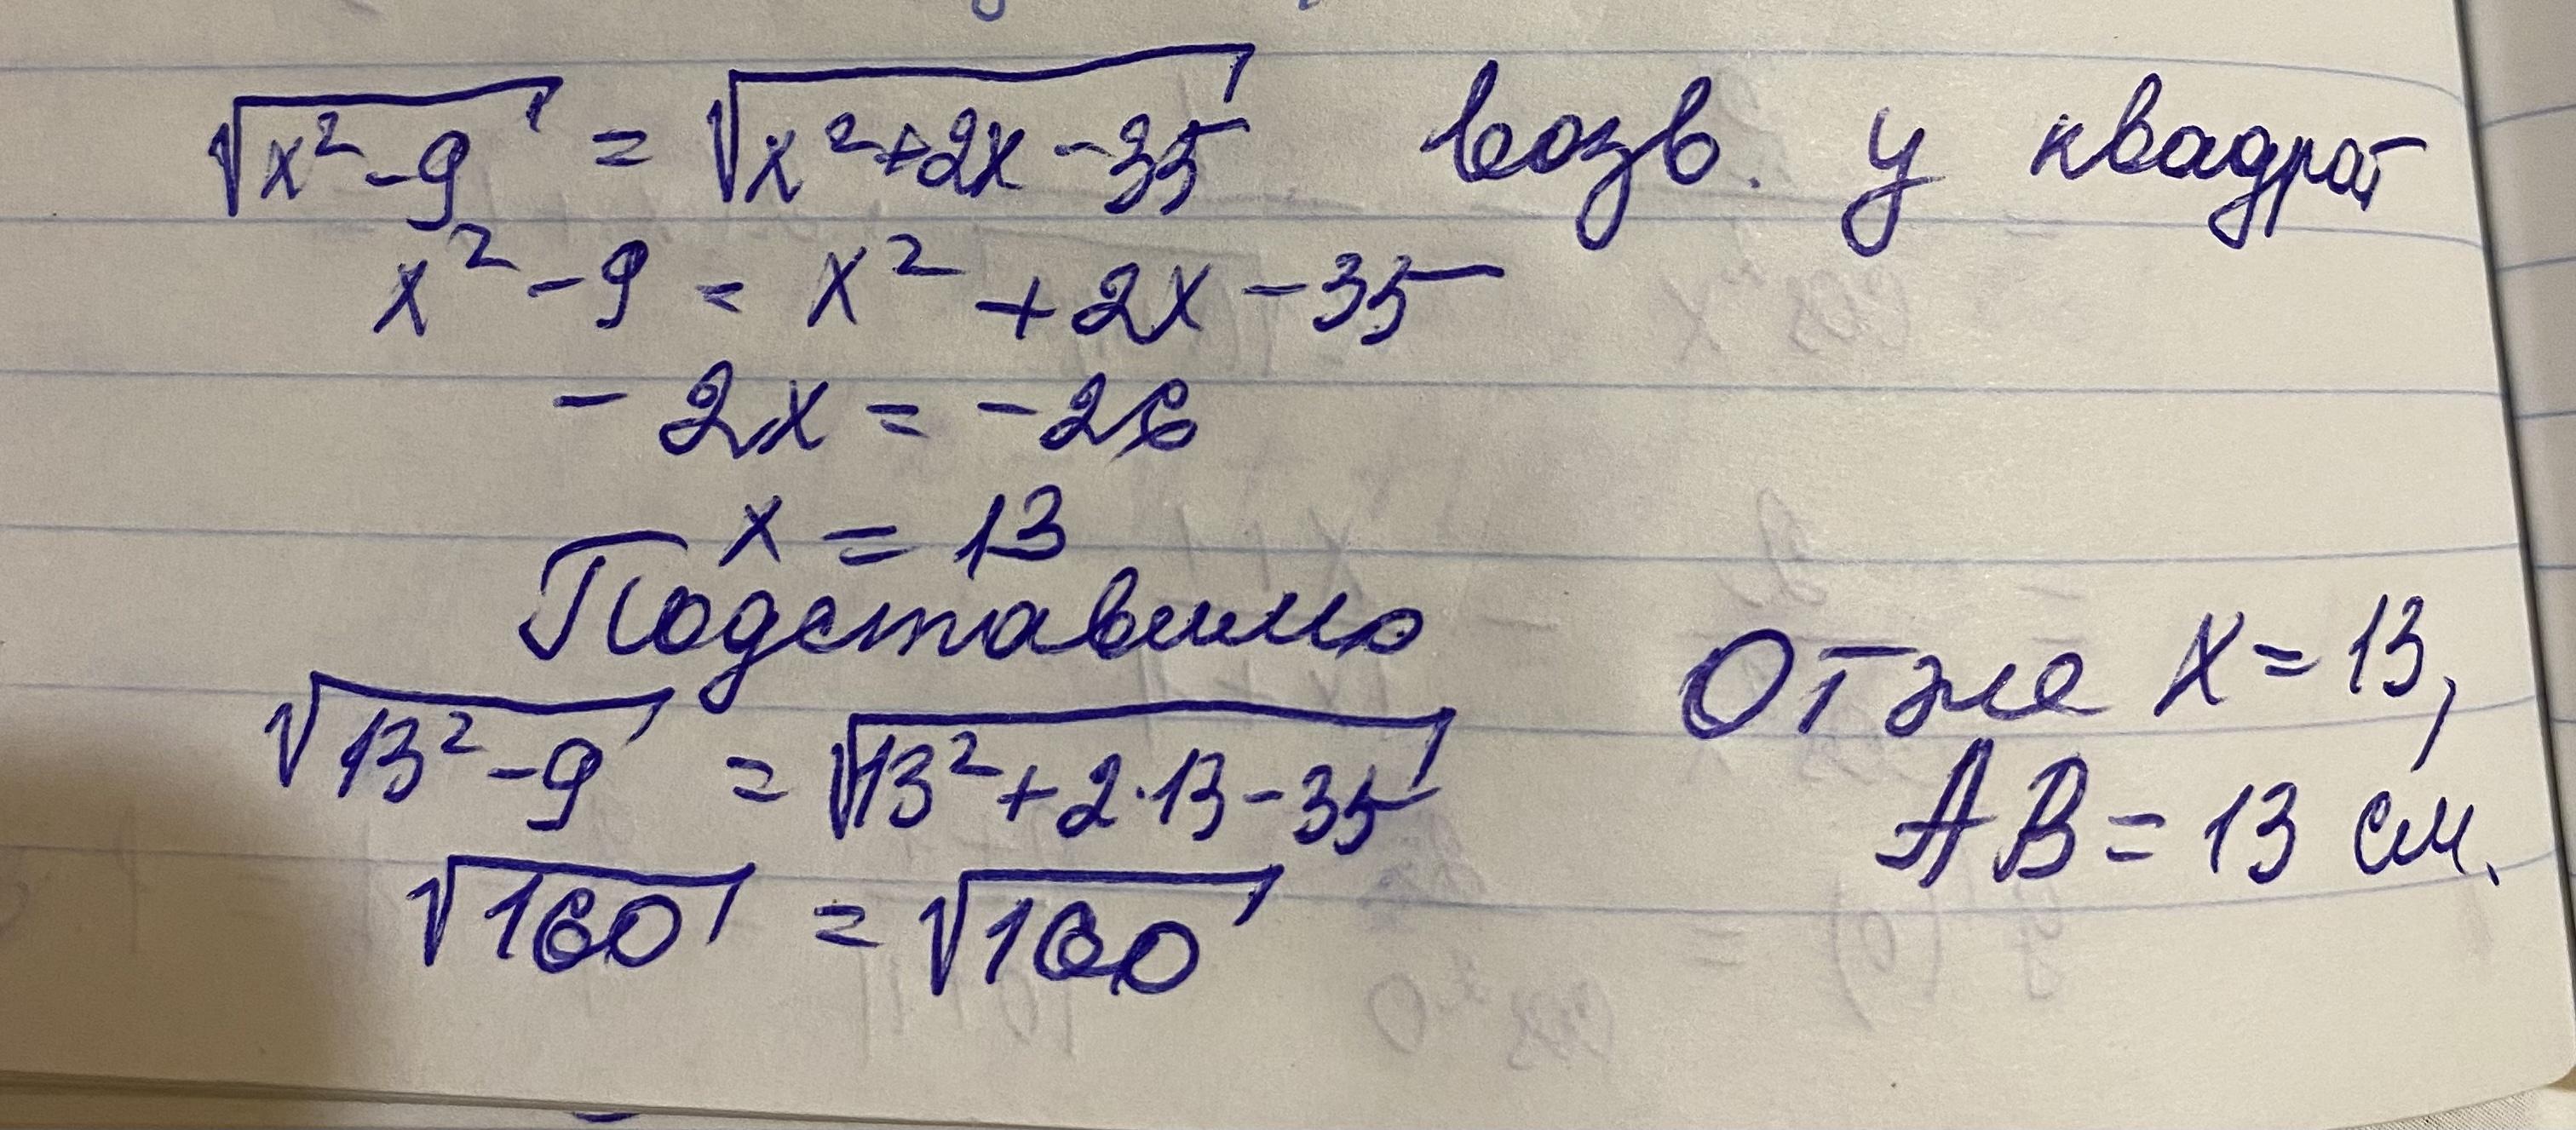 √(x² - 9) = √(x² + 2x - 35) возв. у квадрат
x² - 9 = x² + 2x - 35
- 2x = -26
x = 13
Подставимо
√(13² - 9) = √(13² + 2·13 - 35)
√160 = √160
Отже x = 13,
AB = 13 см.